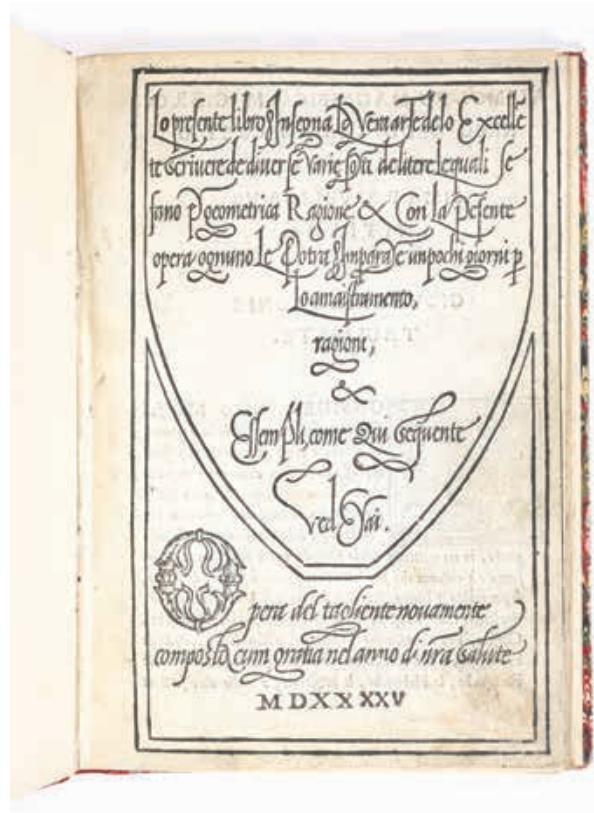 Lo presente libro Insegna La Vera arte de lo Excellē
te scriuere de diuerse varie sorti de litere lequali se
fano p geometrica Ragione & Con la Pesente
opera ognuno Le Potra Imparare in pochi giorni p
Lo amaistramento,
ragione,
&
Essempli, come Qui sequente
Vedrai.
Opera del tagliente nouamente
composta cum gratia nel anno di nrā salute
MDXXXXV